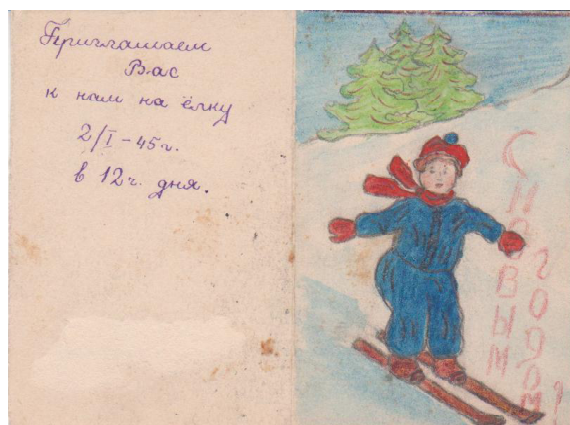 Приглашаем
Вас
к нам на ёлку
2/I-45г.
в 12ч. дня.
С НОВЫМ
ГОДОМ!